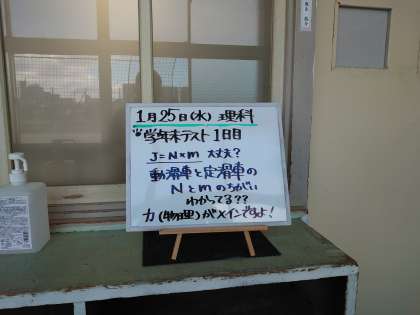 1月25日(水) 理科
学年末テスト1日目
J=N×m 大丈夫?
動滑車と定滑車の
Nとmのちがい
わかってる??
力(物理)がメインですよ!